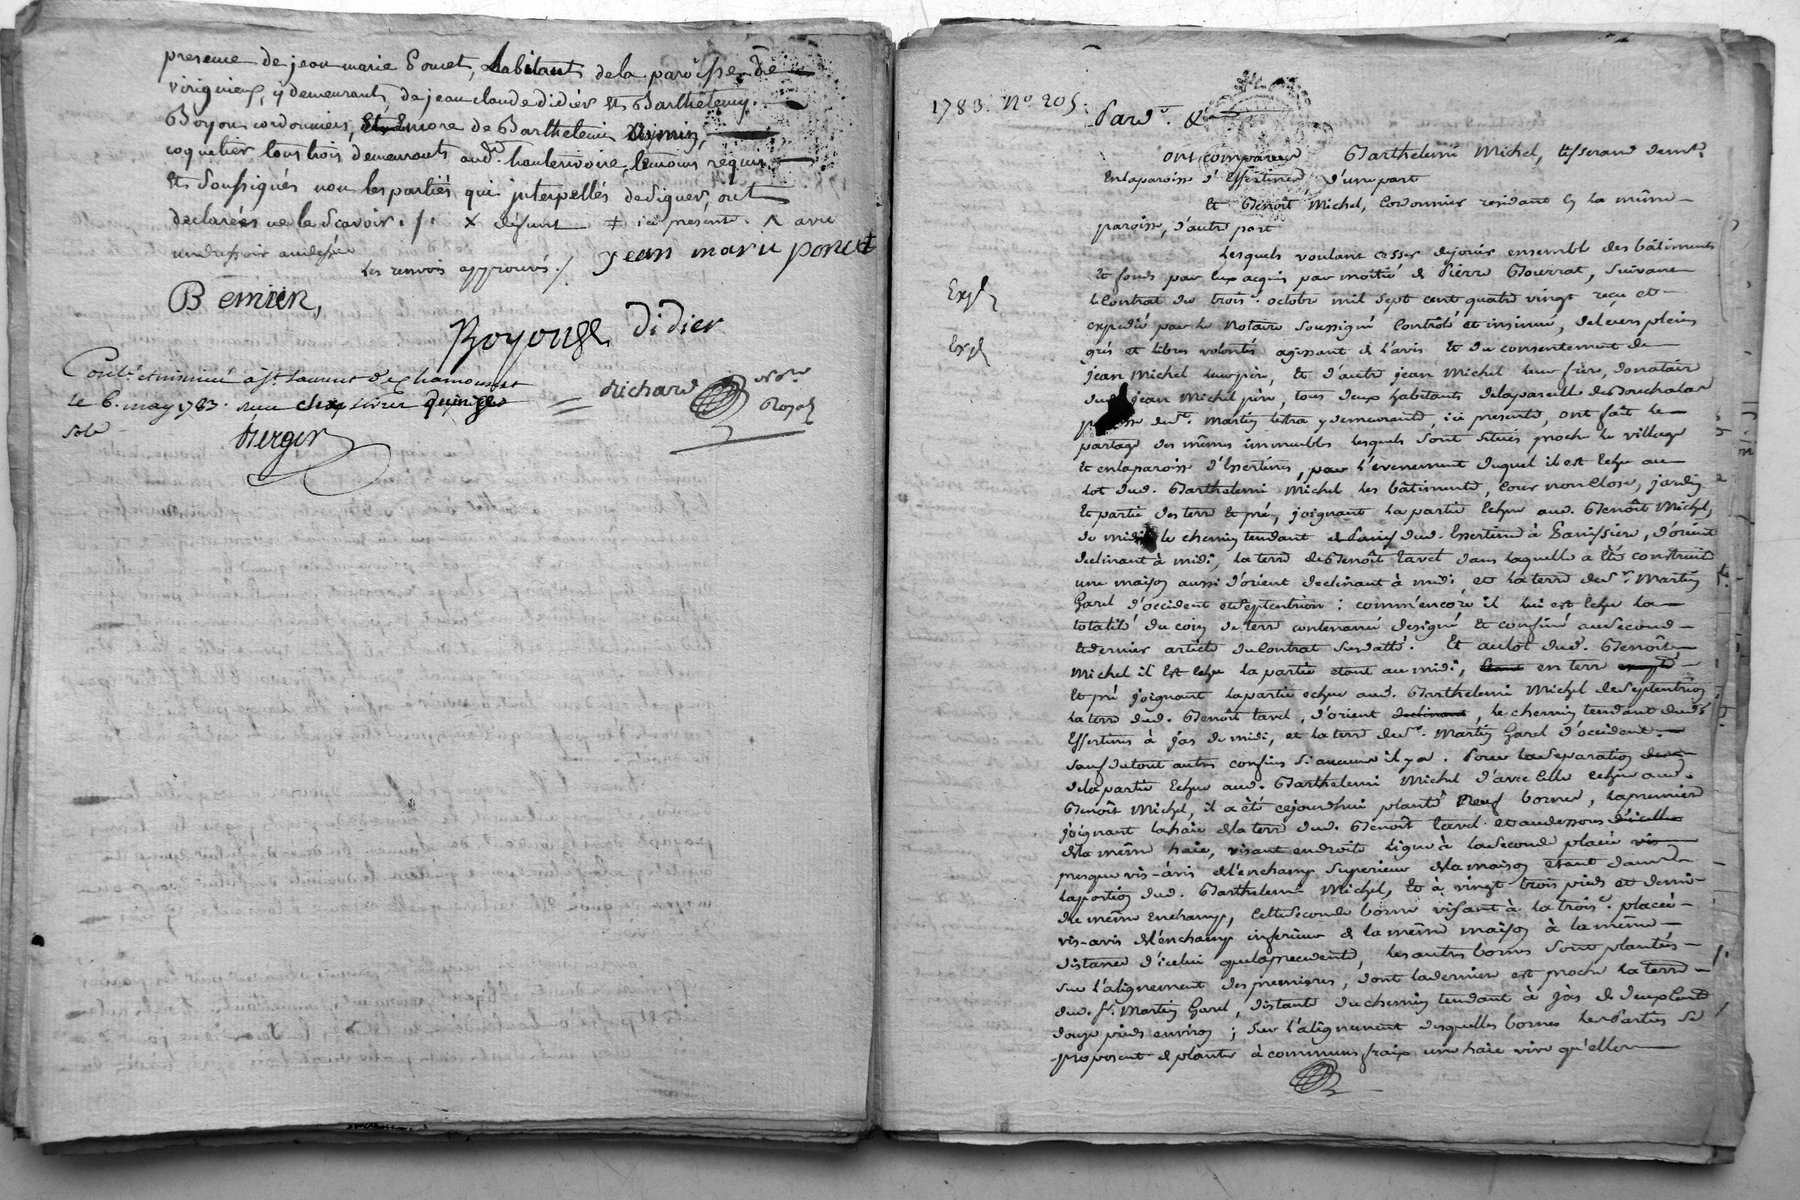 presence de jean marie Poncet, habitant de la paroisse de
virignieux, y demeurant, de jean claude didier et Barthelemy
Boyou cordonniers, encore de Barthelemi
coquetier tous trois demeurants aud. hauterivoire, temoins requis
et soussignés non les parties qui interpellés de signer, ont
declarées ne le scavoir ./. x défunt ≠ ici présente. ^ avec
les renvois approuvés ./. jean marie poncet
Bemien,
Boyou didier
Conlé et insinué à st. Laurent de Chamousset
le 6. may 1783. reçu livres quinze
sols
Berger
Richard Nre Royal
1783. No 205.
Pard. &
Expd
Expd
ont comparu Barthelemi Michel, tisserand demt.
en la paroisse d'Essertines d'une part
Et Benoit Michel, Cordonnier residant en la même
paroisse, d'autre part
Lesquels voulant cesser de jouir ensemble des bâtiments
et fonds par eux acquis par moitié de Pierre Bourrat, suivant
le Contrat du trois. octobre mil sept cent quatre vingt reçu et
expedié par le Notaire soussigné Controlé et insinué, de leurs pleins
grés et libres volontés agissant de l'avis et du consentement de
jean Michel leur pere, et d'autre jean Michel leur frere, donataire
dud. jean Michel pere, tous deux habitants de la parcelle de Bouchalas
paroisse de St. Martin letra y demeurants, ici presents, ont fait le
partage des mêmes immeubles lesquels sont situés proche le village
et en la paroisse d'Essertines, par l'evenement duquel il est echu au
lot dud. Barthelemi Michel les bâtiments, Cour non close, jardin
et partie des terre et pré, joignant la partie echue aud. Benoit Michel,
de midi le chemin tendant dud. Essertines à Panissiere, d'orient
declinant à midi, la terre de Benoit tavel dans laquelle a été construite
une maison aussi d'orient declinant à midi et la terre de Sr. Martin
Garel d'occident et septentrion : comm'encore il lui est echu la
totalité du coin de terre contenancé designé et confiné au second
et dernier article du Contrat susdatté. Et au lot dud. Benoit
Michel il est echu la partie etant au midi, en terre
et pré joignant la partie echue aud. Barthelemi Michel de septentrion
la terre dud. Benoit tavel, d'orient declinant, le chemin tendant dud.
Essertines à Jas de midi, et la terre de Sr. Martin Garel d'occident.
sauf de tout autres confins si aucuns il y a. Pour la separation
de la partie echue aud. Barthelemi Michel d'avec celle echue aud.
Benoit Michel, il a été cejourdhui planté Neuf bornes, la premiere
joignant la haie de la terre dud. Benoit tavel et au dessous d'icelle
de la même haie, visant en droite ligne à la seconde placée
presque vis-à-vis de l'enchamp superieur de la maison etant dans
la portion dud. Barthelemi Michel, et à vingt trois pieds et demi
du même enchamp, cette seconde borne visant à la trois. placée
vis-avis de l'enchamp inferieur de la même maison à la même
distance d'icelui que la precedente, les autres bornes sont plantées
sur l'alignement des premieres, dont la derniere est proche la terre
dud. sr. Martin Garel, distante du chemin tendant à Jas de deux Cent
douze pieds environ ; sur l'alignement desquelles bornes les Parties se
proposent de planter à communs frais une haie vive qu'elles